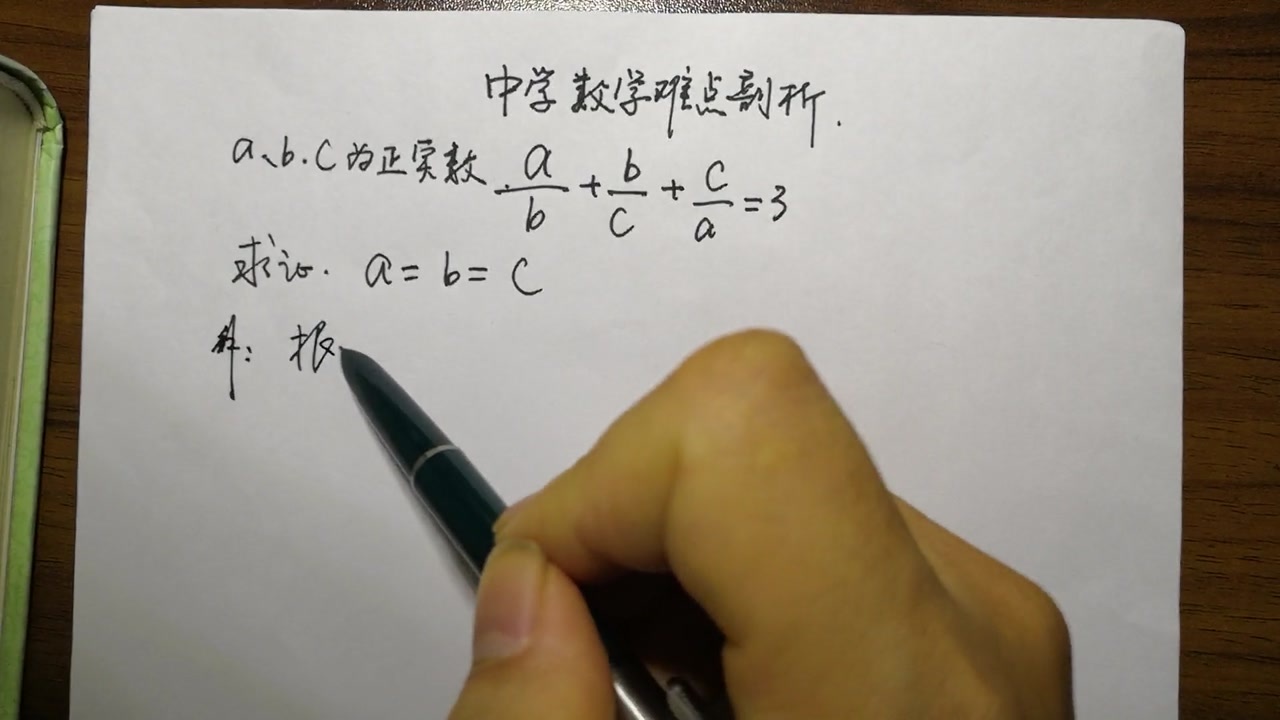 中学数学难点剖析.
a、b.c为正实数 a/b + b/c + c/a = 3
求证. a = b = c
解: 根